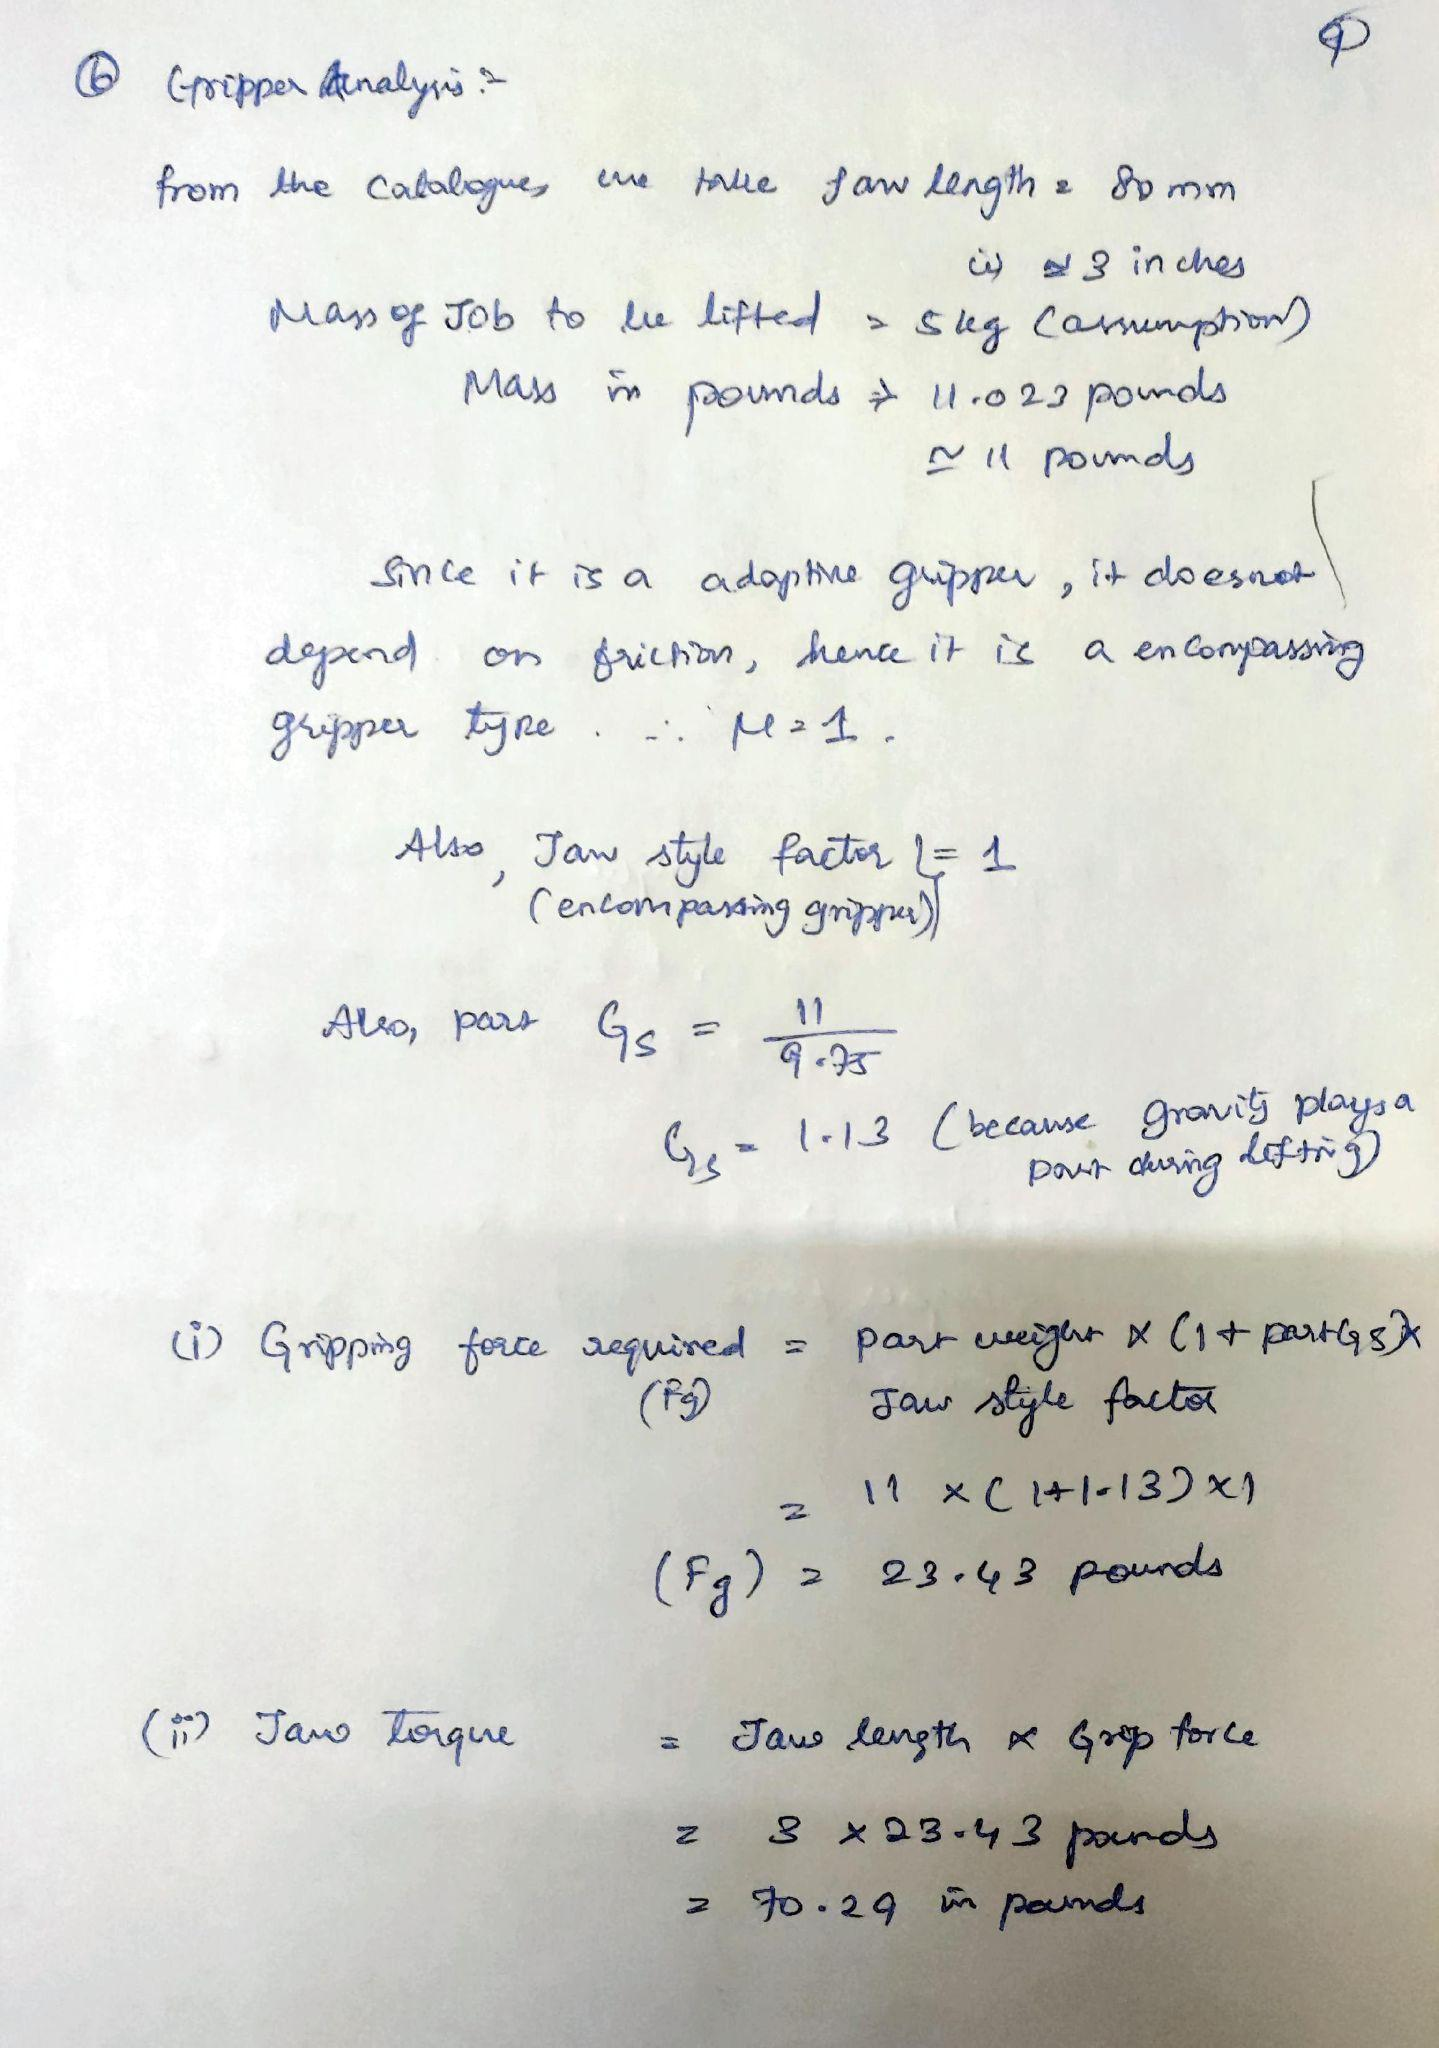 ⑥ Gripper Analysis :-
from the catalogues we take Jaw length = 80 mm
ie) ≃ 3 inches
Mass of Job to be lifted = 5 kg (assumption)
Mass in pounds ⇒ 11.023 pounds
≃ 11 pounds
Since it is a adaptive gripper, it doesnot
depend on friction, hence it is a encompassing
gripper type. ∴ M = 1.
Also, Jaw style factor } = 1
(encompassing gripper)
Also, part Gs = 11 / 9.75
Gs = 1.13 (because gravity plays a
part during lifting)
(i) Gripping force required = part weight x (1 + part Gs) x
(Fg) Jaw style factor
= 11 x (1+1.13) x1
(Fg) = 23.43 pounds
(ii) Jaw torque = Jaw length x Grip force
= 3 x 23.43 pounds
= 70.29 in pounds